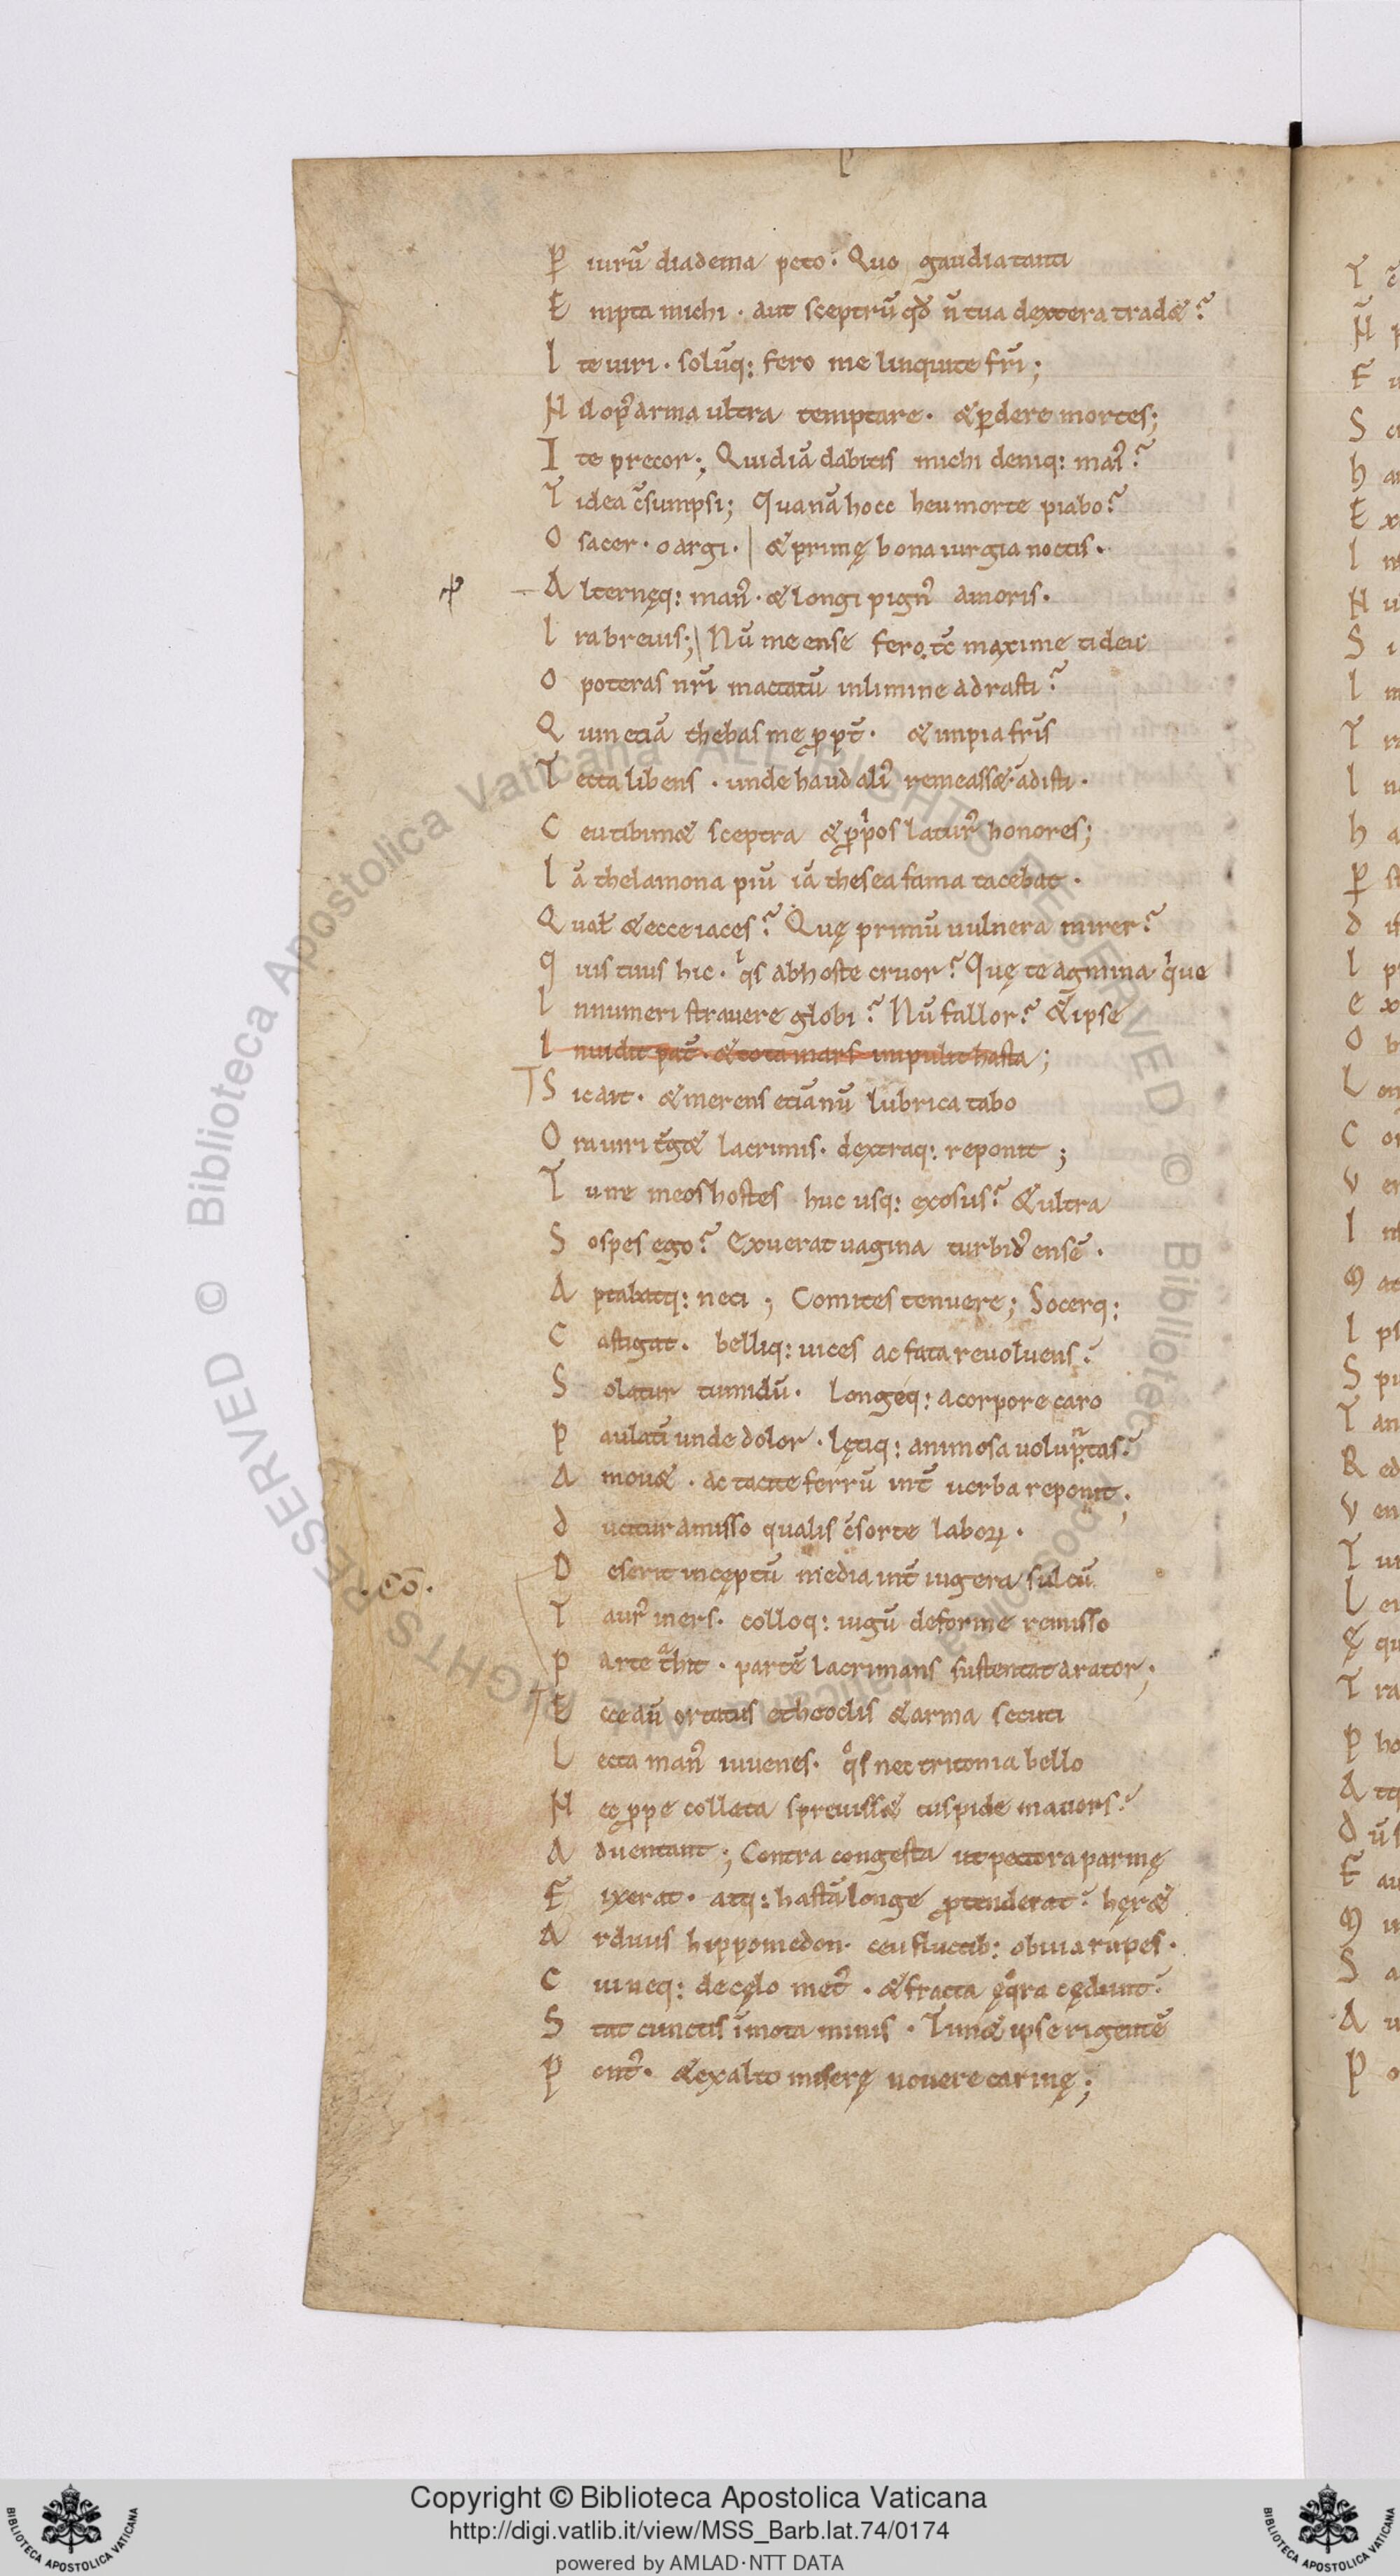 P iurũ diadema peto · Quo gaudia tanti
E mpta michi · aut sceptrũ qđ ñ tua dextera tradet?
I te uiri · solũq: fero me linquite fr̃i;
N il op̃ arma ultra temptare · & ꝑdere mortes;
I te precor; Quid iã dabitis michi deniq: mai᷒?
T idea c̃sumpsi; Quanã hocc heu morte piabo?
O sacer · o argi · | & primę bona iurgia noctis ·
A lternęq: man᷒ · & longi pign᷒ amoris ·
I ra breuis; | Nũ me ense fero tc̃ maxime tideu
O poteras nr̃i mactatũ in limine adrasti?
Q uin etiã thebas me ꝓpt̃ · & impia fr̃is
T ecta libens · unde haud ali᷒ remeasset · adisti ·
C eu tibimet sceptra & ꝓprios latur᷒ honores;
I ã thelamona piũ iã thesea fama tacebat ·
Q ual̃ & ecce iaces? Quę primũ uulnera mirer?
Q uis tuus hic · qis ab hoste cruor? Quę te agmina qiue
I nnumeri strauere globi? Nũ fallor? & ipse
I nuidit pat̃ · & tota mars impulit hasta;
S ic ait · & merens etiãnũ lubrica tabo
O ra uiri t̃get lacrimis · dextraq: reponit;
T une meos hostes huc usq: exosus? & ultra
S ospes ego? Exuerat uagina turbid᷒ ensẽ ·
A ptabatq: neci; Comites tenuere; Socerq:
C astigat · belliq: uices ac fata reuoluens?
S olatur tumidũ · longeq: a corpore caro
P aulati᷒ unde dolor · lętiq: animosa uoluptas?
A mouet · ac tacite ferrũ int̃ uerba reponit;
d ucitur amisso qualis c̃sorte laboꝝ ·
.Cõ. D eserit incęptũ media int̃ iugera sulcũ
T aur᷒ iners · colloq: iugũ deforme remisso
P arte tᵃhit · partẽ lacrimans sustentat arator;
E cce aũ ortatus etheoclis & arma secuti
L ecta man᷒ iuuenes · qᵒs nec tritonia bello
N ec ꝓpe collata spreuisset cuspide mauors?
A duentant; Contra congesta ut pectora parmę
F ixerat · atq: hastã longe ꝓtenderat? hęret
A rduus hippomedon · ceu fluctib: obuia rupes ·
C ui neq: de cęlo met᷒ · & fracta ęqᵒra cędunt?
S tat cunctis ĩmota minis · Timet ipse rigentẽ
P ont᷒ · & ex alto miserę nouere carinę;
Copyright © Biblioteca Apostolica Vaticana
http://digi.vatlib.it/view/MSS_Barb.lat.74/0174
powered by AMLAD·NTT DATA